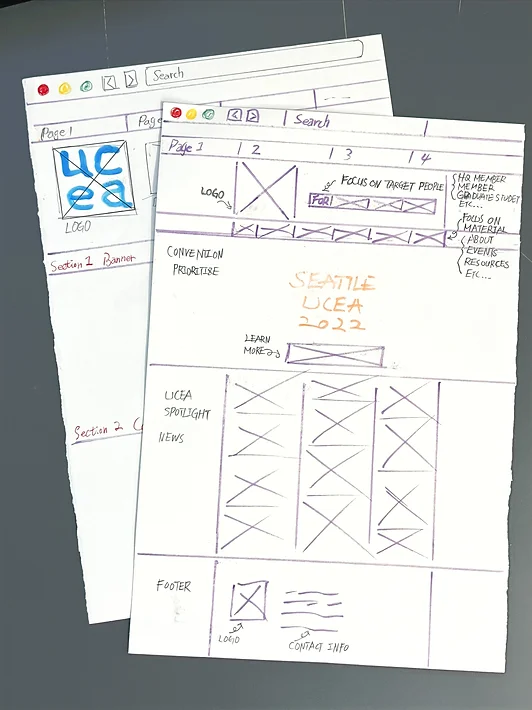 Search
Page 1
Page
uc
ea
LOGO
Section 1 Banner
Section 2
Search
Page 1
2
3
4
LOGO
FOCUS ON TARGET PEOPLE
FOR:
HQ MEMBER
MEMBER
GRADUATE STUDET
ETC...
FOCUS ON
MATERIAL
ABOUT
EVENTS
RESOURCES
ETC...
CONVENTION
PRIORITISE
SEATTLE
UCEA
2022
LEARN
MORE
UCEA
SPOTLIGHT
NEWS
FOOTER
LOGO
CONTACT INFO